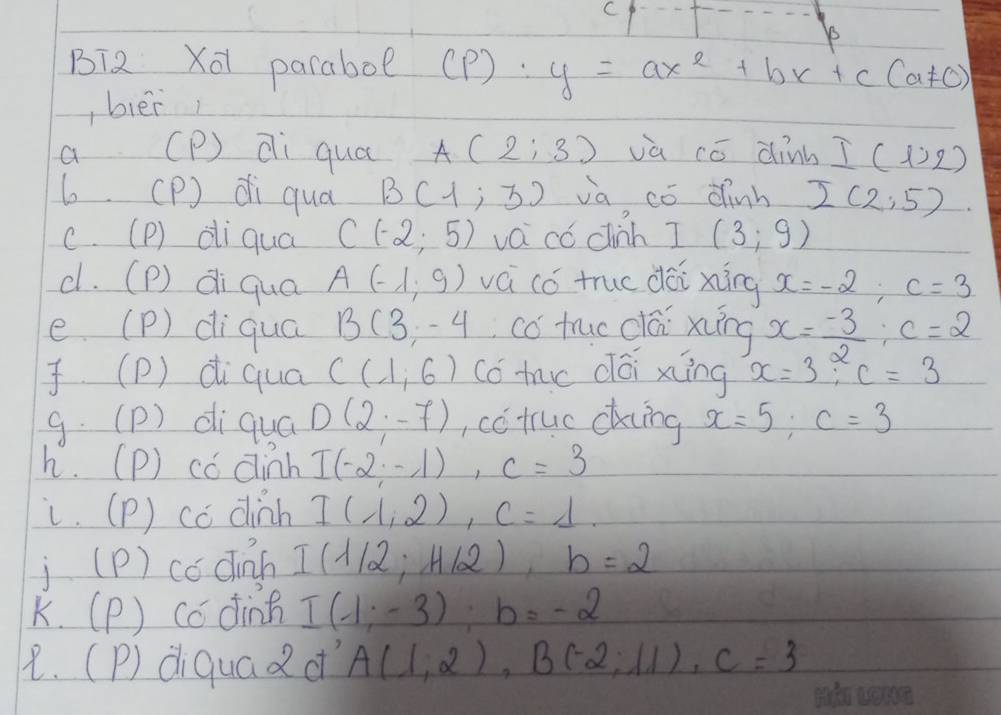 C
B
BT2 Xđ parabol (P): y = ax² + bx + c (a≠0)
, biết,
a (P) đi qua A(2; 3) và có đỉnh I(1; 2)
b. (P) đi qua B(1; 3) và có đỉnh I(2; 5).
c. (P) đi qua C(-2; 5) và có đỉnh I (3; 9)
d. (P) đi qua A(-1; 9) và có trục đối xứng x = -2; c = 3
e (P) đi qua B(3; -4. có trục đối xứng x = -3/2; c = 2
f. (P) đi qua C(1; 6) có trục đối xứng x = 3; c = 3
g. (P) đi qua D(2; -7), có trục đxứng x = 5; c = 3
h. (P) có đỉnh I(-2; -1), c = 3
i. (P) có đỉnh I(1; 2), c = 1.
j (P) có đỉnh I(1/2; 11/2), b = 2
k. (P) có đỉnh I(-1; -3); b = -2
l. (P) đi qua 2 đ' A(1; 2), B(-2; 11), c = 3
HẢI LONG